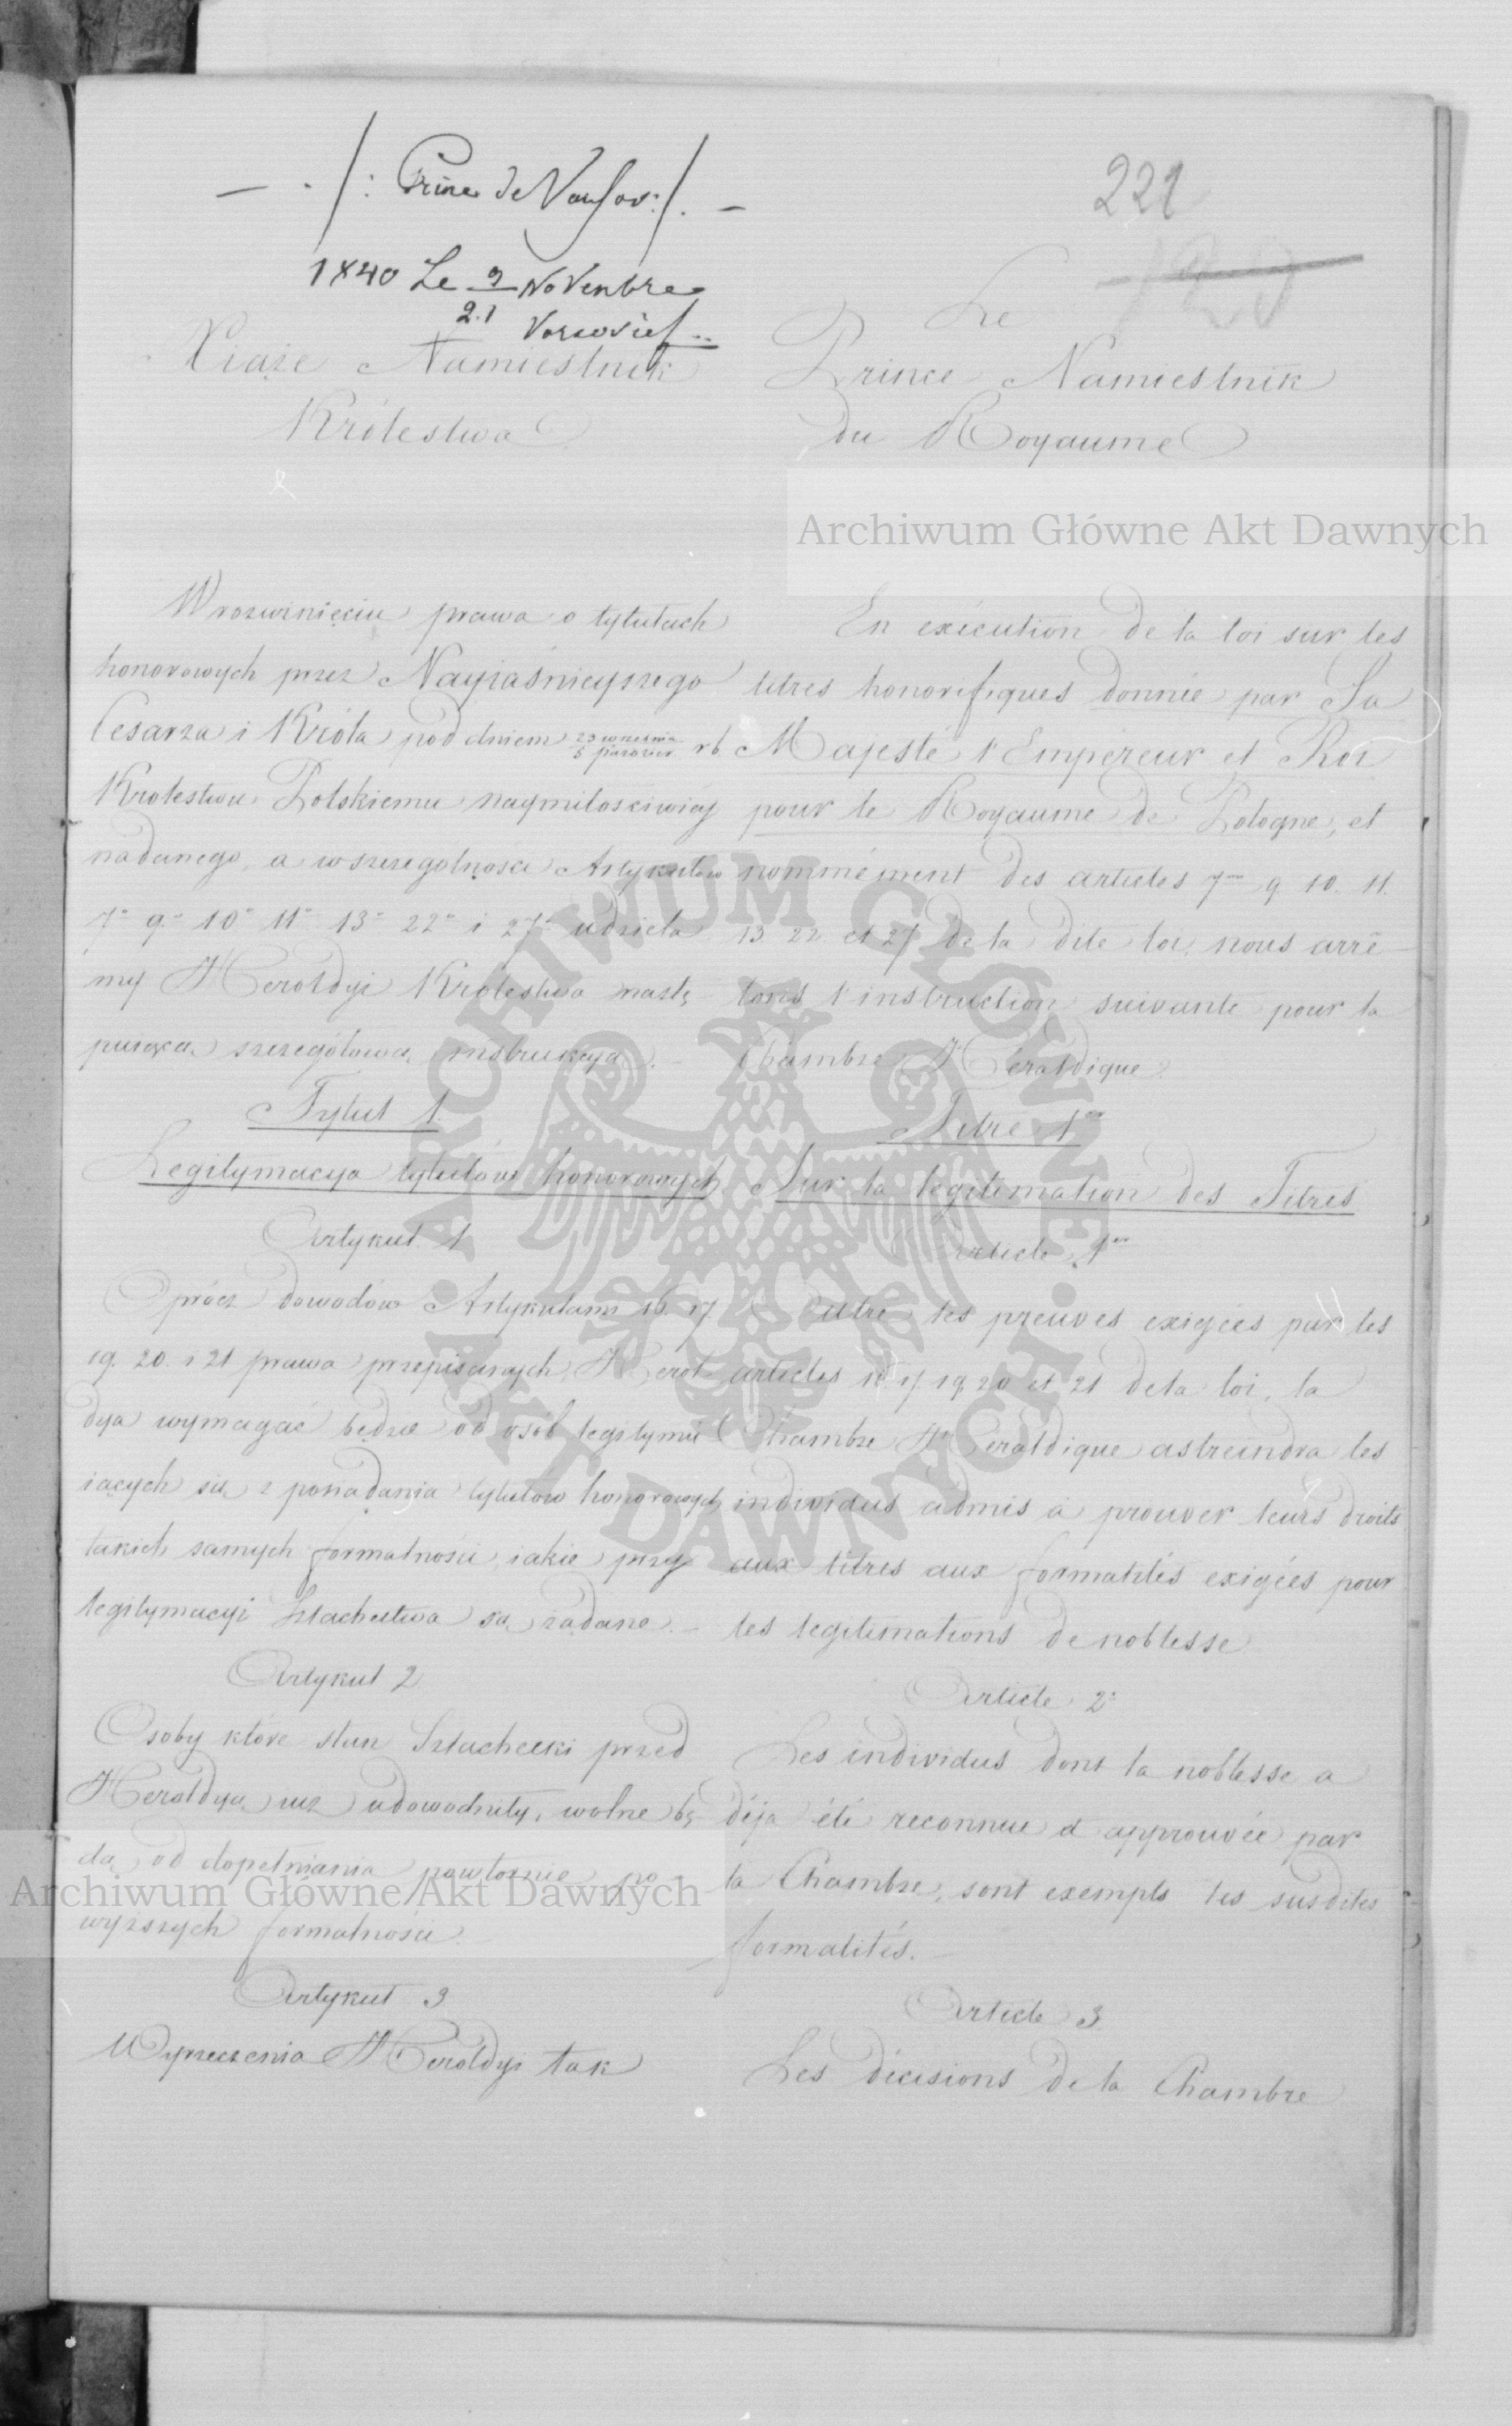 221
1840 Le 9 Novembre
21 Varsovie
Xiąże Namiestnik
Królestwa
W rozwinięciu prawa o tytułach
honorowych przez Nayiaśnieyszego
Cesarza i Króla pod dniem 23 września 5 październ. rb.
Królestwu Polskiemu naymiłościwiey
nadanego, a w szczególności Artykułów
7º 9º 10º 11º 13º 22º i 27º udziela
my Heroldyi Królestwa nastę
puiącą szczegółową instrukcyą. –
Tytuł 1.
Legitymacya tytułów honorowych
Artykuł 1
Oprócz dowodów Artykułami 16. 17.
19. 20. i 21 prawa przepisanych, Herol
dya wymagać będzie od osób legitymu
iących się z posiadania tytułów honorowych
takich samych formalności, iakie przy
legitymacyi Szlachectwa są żądane. –
Artykuł 2
Osoby które stan Szlachecki przed
Heroldyą iuż udowodniły, wolne bę
dą od dopełniania powtórnie po
wyższych formalności.
Artykuł 3
Wyrzeczenia Heroldyi tak
Le
Prince Namiestnik
du Royaume
En exécution de la loi sur les
titres honorifiques donnée par Sa
Majesté l'Empereur et Roi
pour le Royaume de Pologne, et
nommément des articles 7 9. 10. 11.
13. 22. et 27 de la dite loi, nous arrê
tons l'instruction suivante pour la
Chambre Héraldique.
Titre 1er
Sur la legitimation des Titres
Article 1er
Outre les preuves exigées par les
articles 16. 17. 19. 20 et 21 de la loi, la
Chambre Héraldique astreindra les
individus admis à prouver leurs droits
aux titres aux formalités exigées pour
les legitimations de noblesse.
Article 2º
Les individus dont la noblesse a
déja été reconnue et approuvée par
la Chambre, sont exempts des susdites
formalités. –
Article 3.
Les décisions de la Chambre
Archiwum Główne Akt Dawnych
ARCHIWUM GŁÓWNE AKT DAWNYCH
Archiwum Główne Akt Dawnych